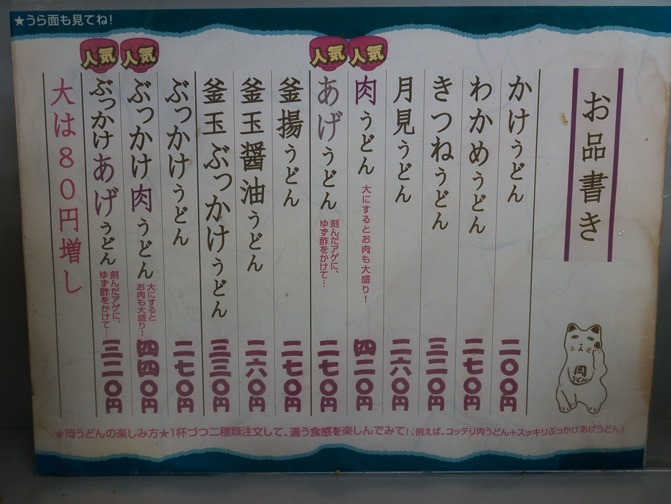 ★うら面も見てね!
お品書き
かけうどん 二〇〇円
わかめうどん 二七〇円
きつねうどん 三二〇円
月見うどん 二六〇円
人気
肉うどん 大にするとお肉も大盛り! 四二〇円
人気
あげうどん 刻んだアゲに、
ゆず酢をかけて… 二七〇円
釜揚うどん 二七〇円
釜玉醤油うどん 二六〇円
釜玉ぶっかけうどん 三三〇円
ぶっかけうどん 二七〇円
人気
ぶっかけ肉うどん 大にすると
お肉も大盛り! 四四〇円
人気
ぶっかけあげうどん 刻んだアゲに、
ゆず酢をかけて… 三二〇円
大は80円増し
岡うどん
★岡うどんの楽しみ方★1杯づつ二種類注文して、違う食感を楽しんでみて!(例えば、コッテリ肉うどん+スッキリぶっかけあげうどん)